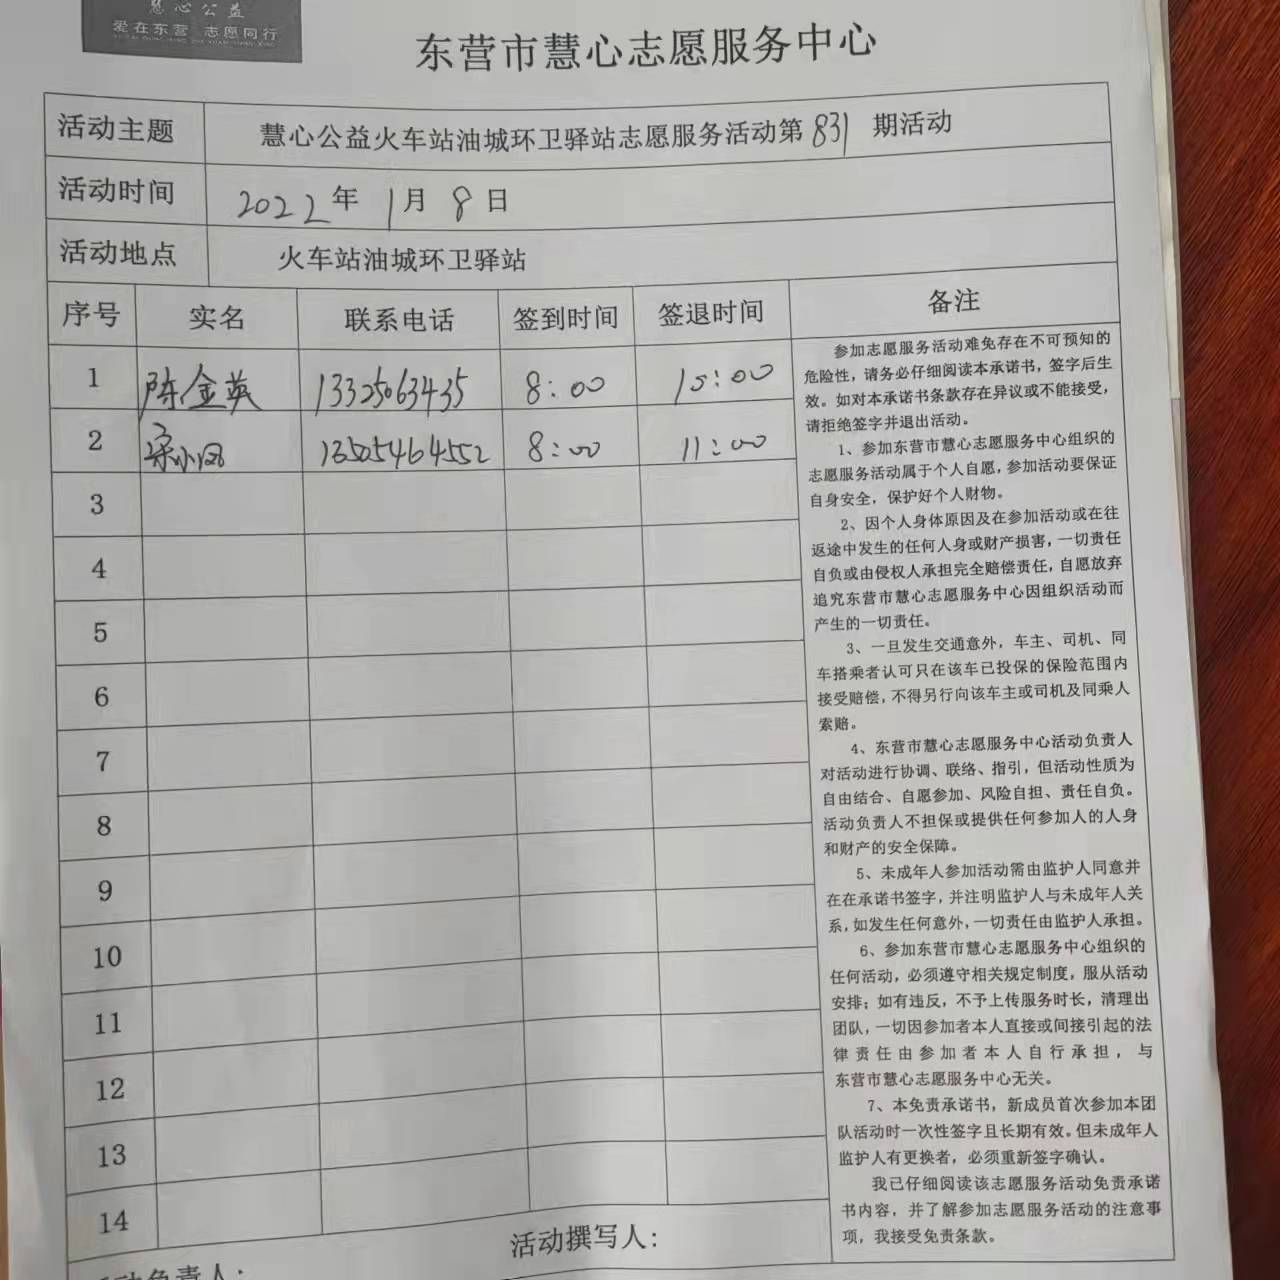 慧心公益
爱在东营 志愿同行
东营市慧心志愿服务中心
活动主题 慧心公益火车站油城环卫驿站志愿服务活动第831期活动
活动时间 2022年1月8日
活动地点 火车站油城环卫驿站
序号 实名 联系电话 签到时间 签退时间 备注
1 陈金英 13325063435 8:00 10:00
2 宋小凤 13505464552 8:00 11:00
3
4
5
6
7
8
9
10
11
12
13
14
参加志愿服务活动难免存在不可预知的
危险性，请务必仔细阅读本承诺书，签字后生
效。如对本承诺书条款存在异议或不能接受，
请拒绝签字并退出活动。
1、参加东营市慧心志愿服务中心组织的
志愿服务活动属于个人自愿，参加活动要保证
自身安全，保护好个人财物。
2、因个人身体原因及在参加活动或在往
返途中发生的任何人身或财产损害，一切责任
自负或由侵权人承担完全赔偿责任，自愿放弃
追究东营市慧心志愿服务中心因组织活动而
产生的一切责任。
3、一旦发生交通意外，车主、司机、同
车搭乘者认可只在该车已投保的保险范围内
接受赔偿，不得另行向该车主或司机及同乘人
索赔。
4、东营市慧心志愿服务中心活动负责人
对活动进行协调、联络、指引，但活动性质为
自由结合、自愿参加、风险自担、责任自负。
活动负责人不担保或提供任何参加人的人身
和财产的安全保障。
5、未成年人参加活动需由监护人同意并
在在承诺书签字，并注明监护人与未成年人关
系，如发生任何意外，一切责任由监护人承担。
6、参加东营市慧心志愿服务中心组织的
任何活动，必须遵守相关规定制度，服从活动
安排；如有违反，不予上传服务时长，清理出
团队，一切因参加者本人直接或间接引起的法
律责任由参加者本人自行承担，与
东营市慧心志愿服务中心无关。
7、本免责承诺书，新成员首次参加本团
队活动时一次性签字且长期有效。但未成年人
监护人有更换者，必须重新签字确认。
我已仔细阅读该志愿服务活动免责承诺
书内容，并了解参加志愿服务活动的注意事
项，我接受免责条款。
活动撰写人：
活动负责人：